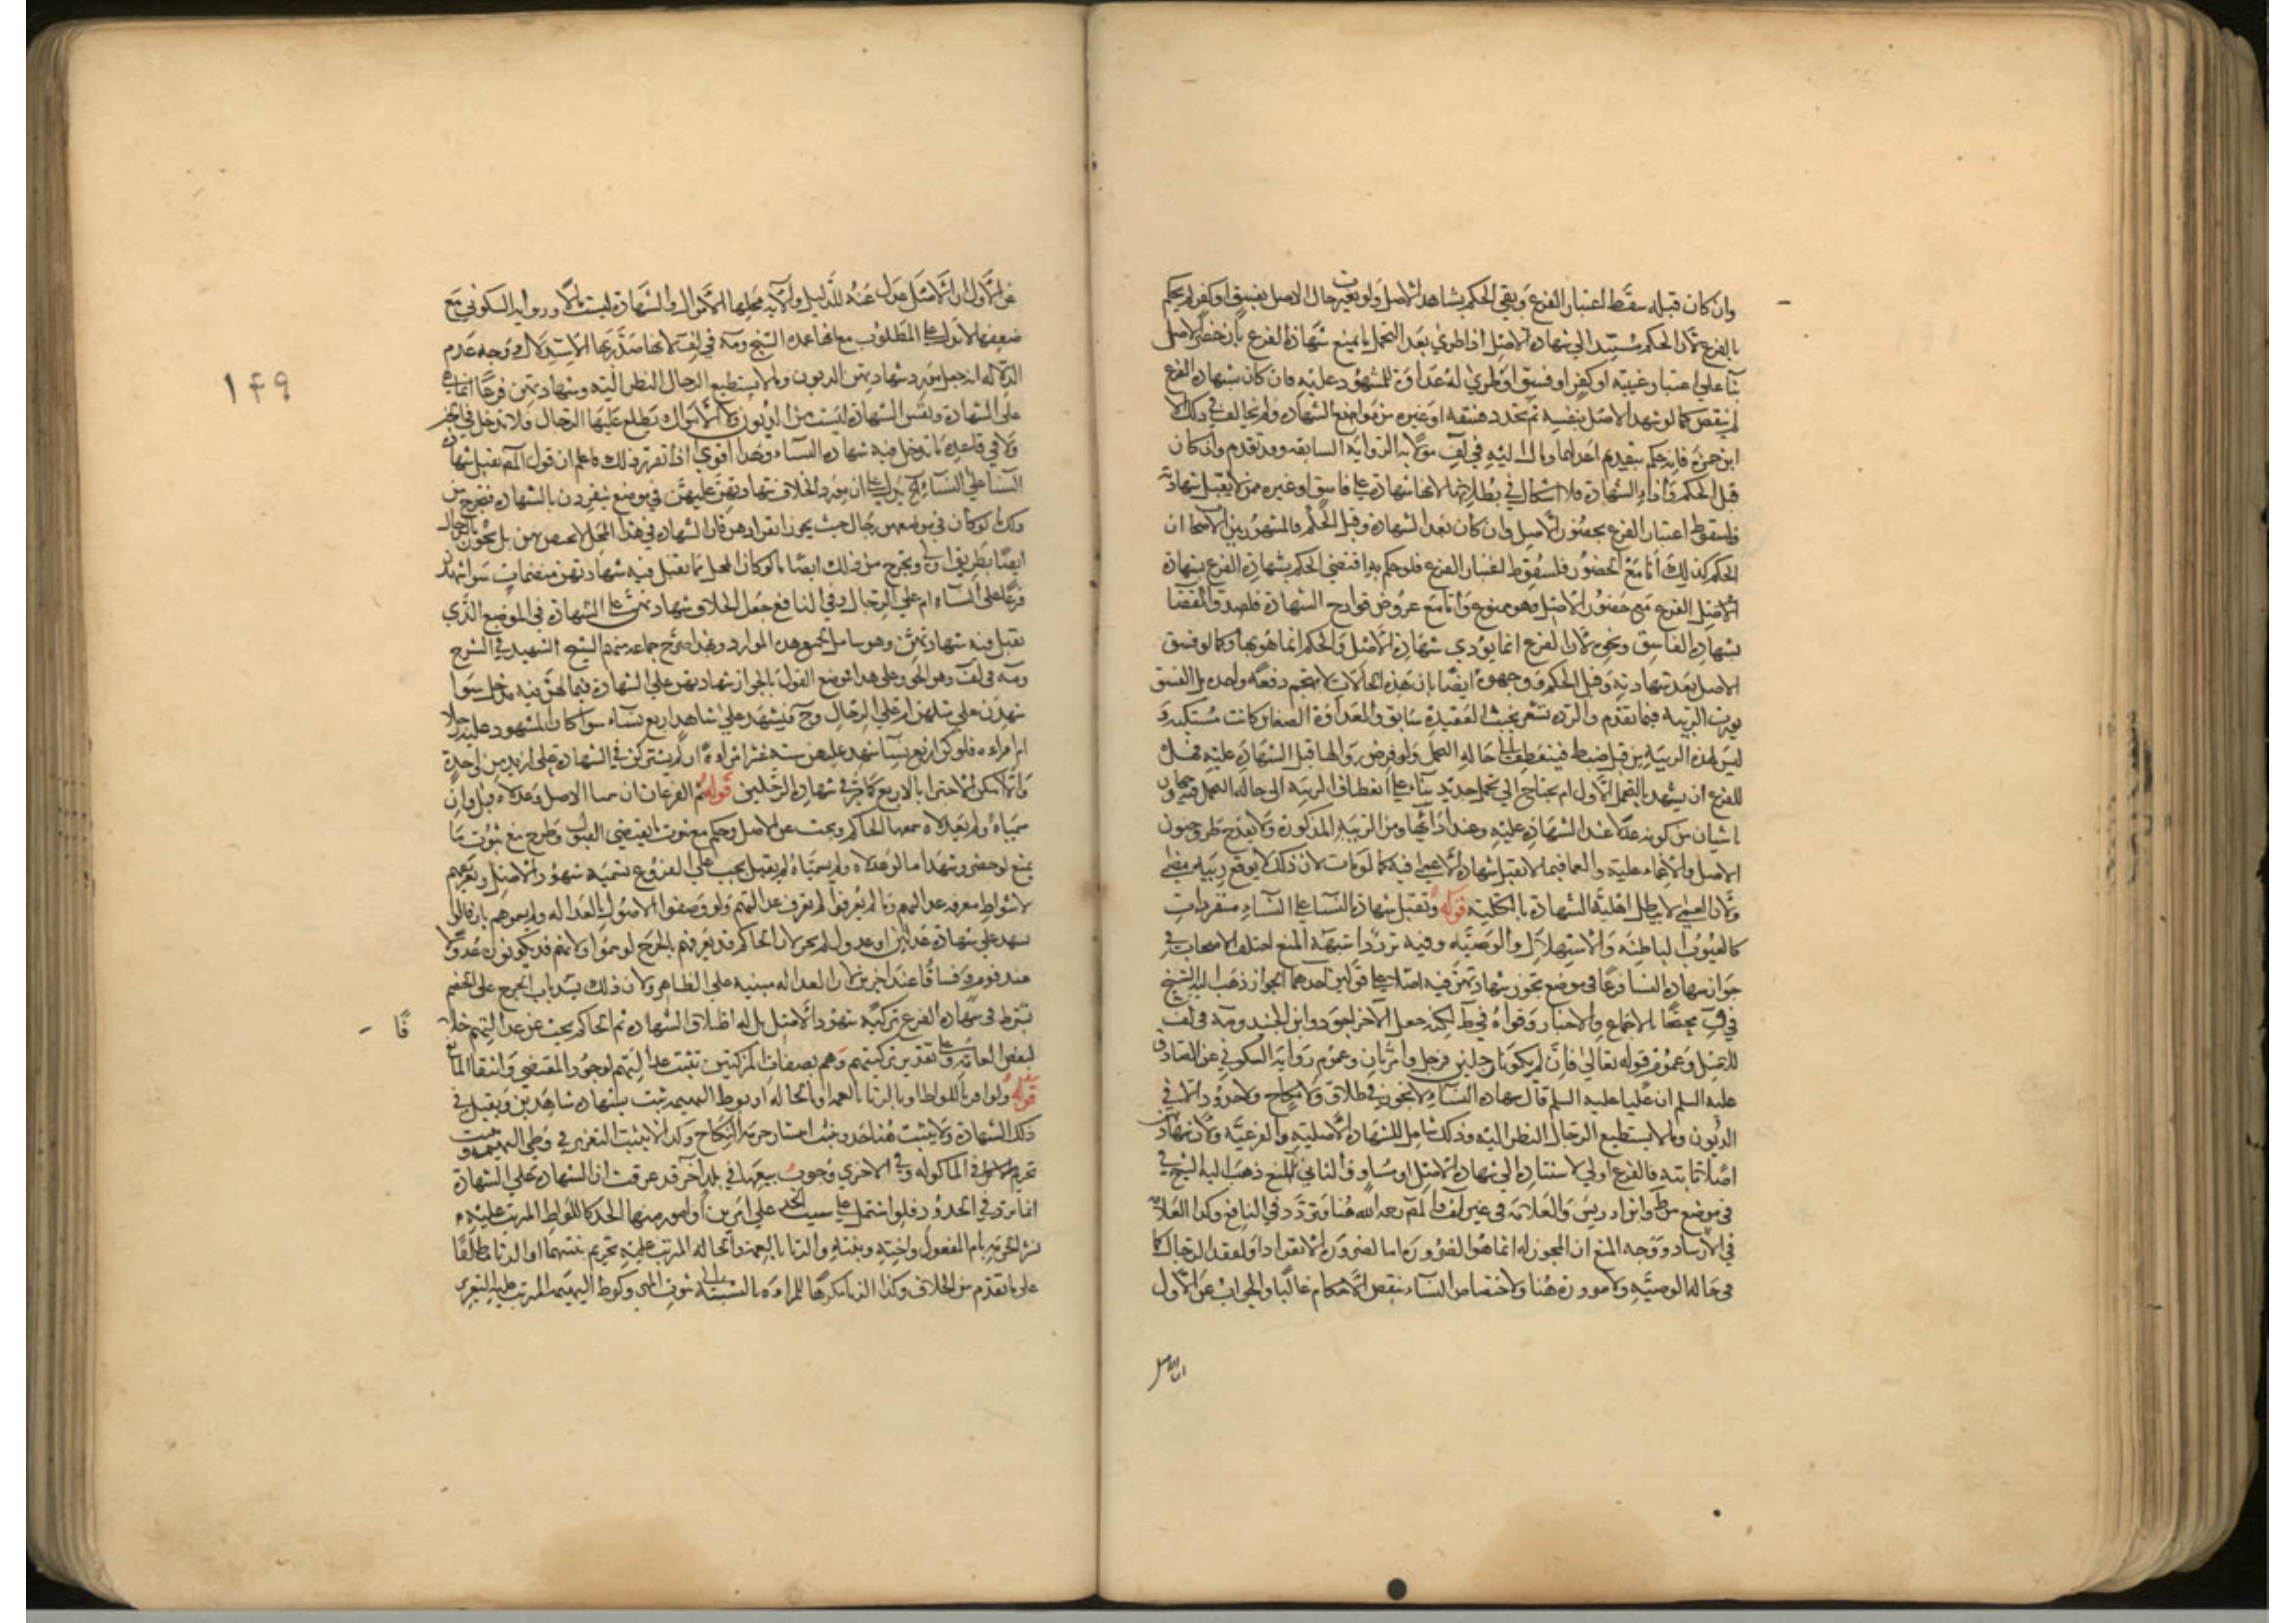 وان كان قبله سقط اعتبار الفرع وبقي الحكم بشاهد الاصل ولو تغيرت حال الاصل بفسق او كفر لم يحكم
بالفرع لان الحكم مستند الي شهادة الاصل اذا طري بعد التحمل ما يمنع شهادة الفرع بان
بنا علي اعتبار غيبته او كفر او فسق او طري له عداوة للمشهود عليه فان كان شهادة الفرع
لم ينقض كما لو شهد الاصل بنفسه ثم تجدد فسقه او غيره من موانع الشهادة ولم يخالف في ذلك الا
ابن حمزة فانه حكم بتقديم اعدلهما ومال اليه في لف مولا به الرواية السابقة وقد تقدم وان كان
قبل الحكم واداء الشهادة فلا اشكال في بطلانها لانها شهادة علي فاسق او غيره ممن لا يقبل شهادته
فلسقوط اعتبار الفرع بحضور الاصل وان كان بعد الشهادة وقبل الحكم فالمشهور بين الاصحاب ان
الحكم كذلك أما مع الحضور فلسقوط اعتبار الفرع فلو حكم به اقتضي الحكم بشهادة الفرع شهادة
الاصل الفرع مع حضور الاصل وهو ممنوع وأما مع عروض قوادح الشهادة فلصدق القضا
بشهادة الفاسق ونحوه لان الفرع انما يؤدي شهادة الاصل والحكم انما هو بها وكما لو فسق
الاصل بعد شهادته وقبل الحكم ووجهوه ايضا بان هذه الحالات لا تهجم دفعة واحدة بل الفسق
يورث الريبة فيما تقدم والردة تشعر بخبث العقيدة سابقا والعداوة الصفا وكانت مستكنة
ليس لهذه الريبة من قبل ضبط فينعطف الي حالة التحمل ولو فرض زوالها قبل الشهادة عليه فهل
للفرع ان يشهد بالتحمل الاول ام يحتاج الي تحمل جديد بناء علي انعطاف الريبة الي حالة التحمل
ناشيان من كونه عدلا عند الشهادة عليه وعند أدائها ومن الريبة المذكورة ولا يقدح طرو جنون
الاصل والاغماء عليه والعما فيما لا تقبل شهادة الاعمي فيه كما لو مات لان ذلك لا يوقع ريبة
ولان العمي لا يبطل اهلية الشهادة بالكلية قوله وتقبل شهادة النساء علي النساء منفردات
كالعيوب الباطنة والاستهلال والوصية وفيه تردد اشبهه المنع اختلف الاصحاب في
جواز شهادة النسا فرعا في موضع تجوز شهادتهن فيه اصلا علي قولين احدهما الجواز ذهب اليه الشيخ
في ف محتجا بالاجماع والاخبار وقواه في ط لكنه جعل الآخر اجود وابن الجنيد ومه في لف
للاصل وعموم قوله تعالي فان لم يكونا رجلين فرجل وامرأتان وعموم رواية السكوني عن الصادق
عليه السلم ان عليا عليه السلم قال شهادة النساء لا تجوز في طلاق ولا نكاح ولا حدود الا في
الديون وما لا يستطيع الرجال النظر اليه وذلك شامل للشهادة الاصلية والفرعية ولان شهادتهن
اصلا ثابتة فالفرع اولي لاستناده الي شهادة الاصل او مساو والثاني المنع ذهب اليه الشيخ
في موضع من ط وابن ادريس والعلامة في غير لف والمصم رحمه الله هنا وتردد في النافع وكذا العلامة
في الارشاد ووجه المنع ان المجوز له انما هو الضرورة اما لضرورة الانفراد او لفقد الرجال كما
في حالة الوصية ولا ضرورة هنا ولاختصاص النساء بنقص الاحكام غالبا والجواب عن الاول
ان الاصل
١٤٩
عن الاول ان الاصل عدل عنه للدليل والآية محلها الاموال والشهادة ليست مالا ورواية السكوني مع
ضعفها لا تدل علي المطلوب مع انها عمدة الشيخ ومه في لف لانهما صدرا بها الاستدلال ووجه عدم
الدلالة انه جعل مورد شهادتهن الديون وما لا يستطيع الرجال النظر اليه وشهادتهن فرعا انما هي
علي الشهادة ونفس الشهادة ليست من الديون ولا الاموال يطلع عليها الرجال فلا تدخل في الخبر
ولا في قاعدة ما تدخل فيه شهادة النساء وهذا اقوي اذا تقرر ذلك فاعلم ان قول المصم تقبل شهادة
النسا علي النساء الخ يدل علي ان مورد الخلاف شهادتهن عليهن في موضع ينفردن بالشهادة فيخرج من
ذلك لو كان في موضعهن رجال حيث يجوز انفرادهن فان الشهادة في هذا المحل لا تختص بهن بل تجوز بالرجال
ايضا بطريق اولي ويخرج من ذلك ايضا ما لو كان المحل مما تقبل فيه شهادتهن منضمات سوا شهدن
فرعا علي النساء ام علي الرجال وفي النافع جعل الخلاف شهادتهن علي الشهادة في الموضع الذي
تقبل فيه شهادتهن وهو شامل لجميع هذه الموارد وبهذا صرح جماعة منهم الشيخ الشهيد في الشرح
ومه في لف وهو الحق وعلي هذا فموضع القول بالجواز شهادتهن علي الشهادة فيما لهن فيه مدخل سوا
شهدن علي مثلهن ام علي الرجال وح فيشهد علي شاهد اربع نساء سوا كان المشهود عليه رجلا
ام امراءة فلو كن اربع نسا شهد عليهن ستة عشر امراءة ان لم يشتركن في الشهادة علي ازيد من واحدة
والا امكن الاجتزا بالاربع كما مر في شهادة الرجلين قوله ثم الفرعان ان سميا الاصل وعدلاه قبل وان
سمياه ولم يعدلاه سمعها الحاكم وبحث عن الاصل وحكم مع ثبوت ما يقتضي القبول وطرح مع ثبوت ما
يمنع لو حضر وشهد اما لو عدلاه ولم يسمياه لم يقبل يجب علي الفروع تسمية شهود الاصل وتعريفهم
لاشتراط معرفة عدالتهم وما لم يعرفوا لم تعرف عدالتهم ولو وصفوا الاصول بالعدالة ولم يسموهم بان قالوا
نشهد علي شهادة عدلين او عدول لم يجز لان الحاكم قد يعرفهم بالجرح لو سموا ولانهم قد يكونون عدولا
عند قوم وفساقا عند اخرين لان العدالة مبنية علي الظاهر ولان ذلك يسد باب الجرح علي الخصم
يشترط في شهادة الفرع تزكية شهود الاصل بل له اطلاق الشهادة ثم الحاكم يبحث عن عدالتهم خلافا
لبعض العامة وعلي تقدير تزكيتهم وهم بصفات المزكين تثبت عدالتهم لوجود المقتضي وانتفا المانع
قوله ولو اقر باللواط او بالزنا بالعمة او الخالة او بوطئ البهيمة ثبت بشهادة شاهدين ويقبل في
ذلك الشهادة ولا يثبت هنا حد ويثبت انتشار حرمة النكاح وكذا لا يثبت التعزير في وطي البهيمة ويثبت
تحريم في الماكولة وفي الاخري وجوب بيعها في بلد آخر قد عرفت ان الشهادة علي الشهادة
انما ترد في الحدود فلو اشتمل علي سبب الحد علي امرين او امور منها الحد كاللواط المرتب عليه
نشر الحرمة بام المفعول واخته وبنته والزنا بالعمة والخالة المرتب عليه تحريم بنتهما او الزنا مطلقا
علي ما تقدم من الخلاف وكذا الزنا مكرها للمراءة بالنسبة الي ثبوت المهر وكوط البهيمة المرتب عليه التعزير